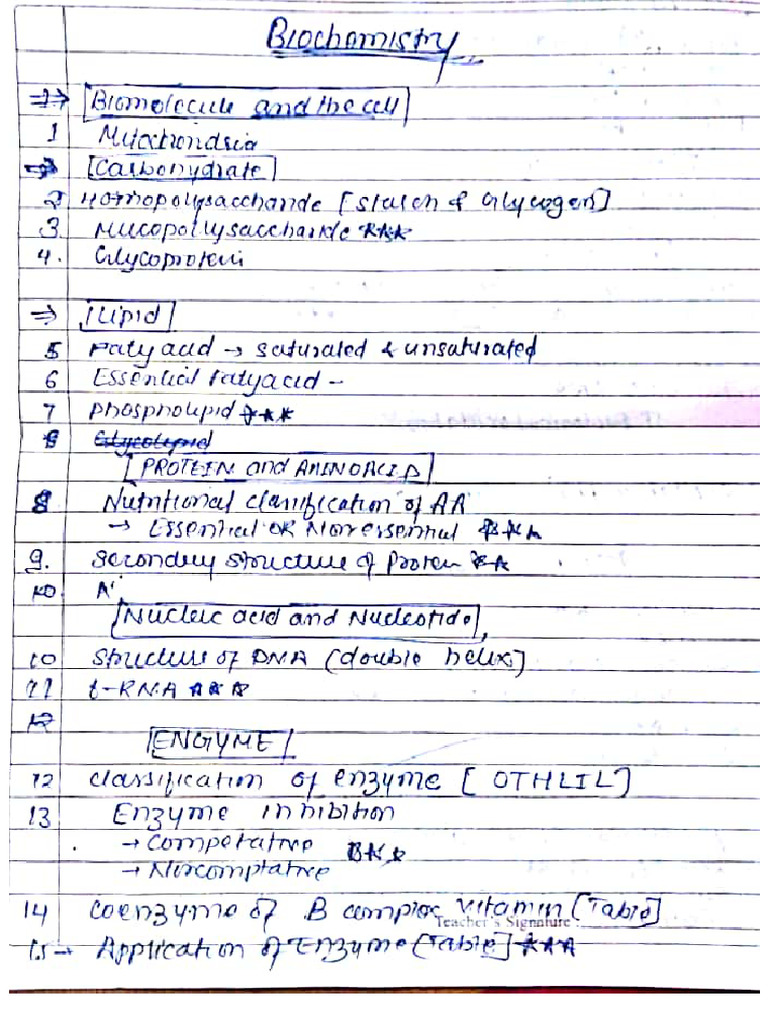 Biochemistry
⇒ [Biomolecule and the cell]
1 Mitochondria
⇒ [Carbohydrate]
2 Homopolysaccharide [starch & Glycogen]
3. Mucopollysaccharide ***
4. Glycoprotein
⇒ [Lipid]
5 Fatyacid → saturated & unsaturated
6 Essential Fatyacid -
7 Phospholipid ***
8 Glycolipid
[PROTEIN and AMINOACID]
8 Nutritional classification of AA
→ Essential or Nonessential ***
9. Secondry structure of Protein **
10. A
[Nucleic acid and Nucleotide],
10 Structure of DNA (double helix]
11 t-RNA ***
12
[ENGYME]
12 classification of enzyme [OTHLIL]
13 Enzyme inhibition
→ Competative ***
→ Noncomptative
14 Coenzyme of B complex vitamin [Table]
Teacher's Signature :
15 → Application of Enzyme [Table] ***